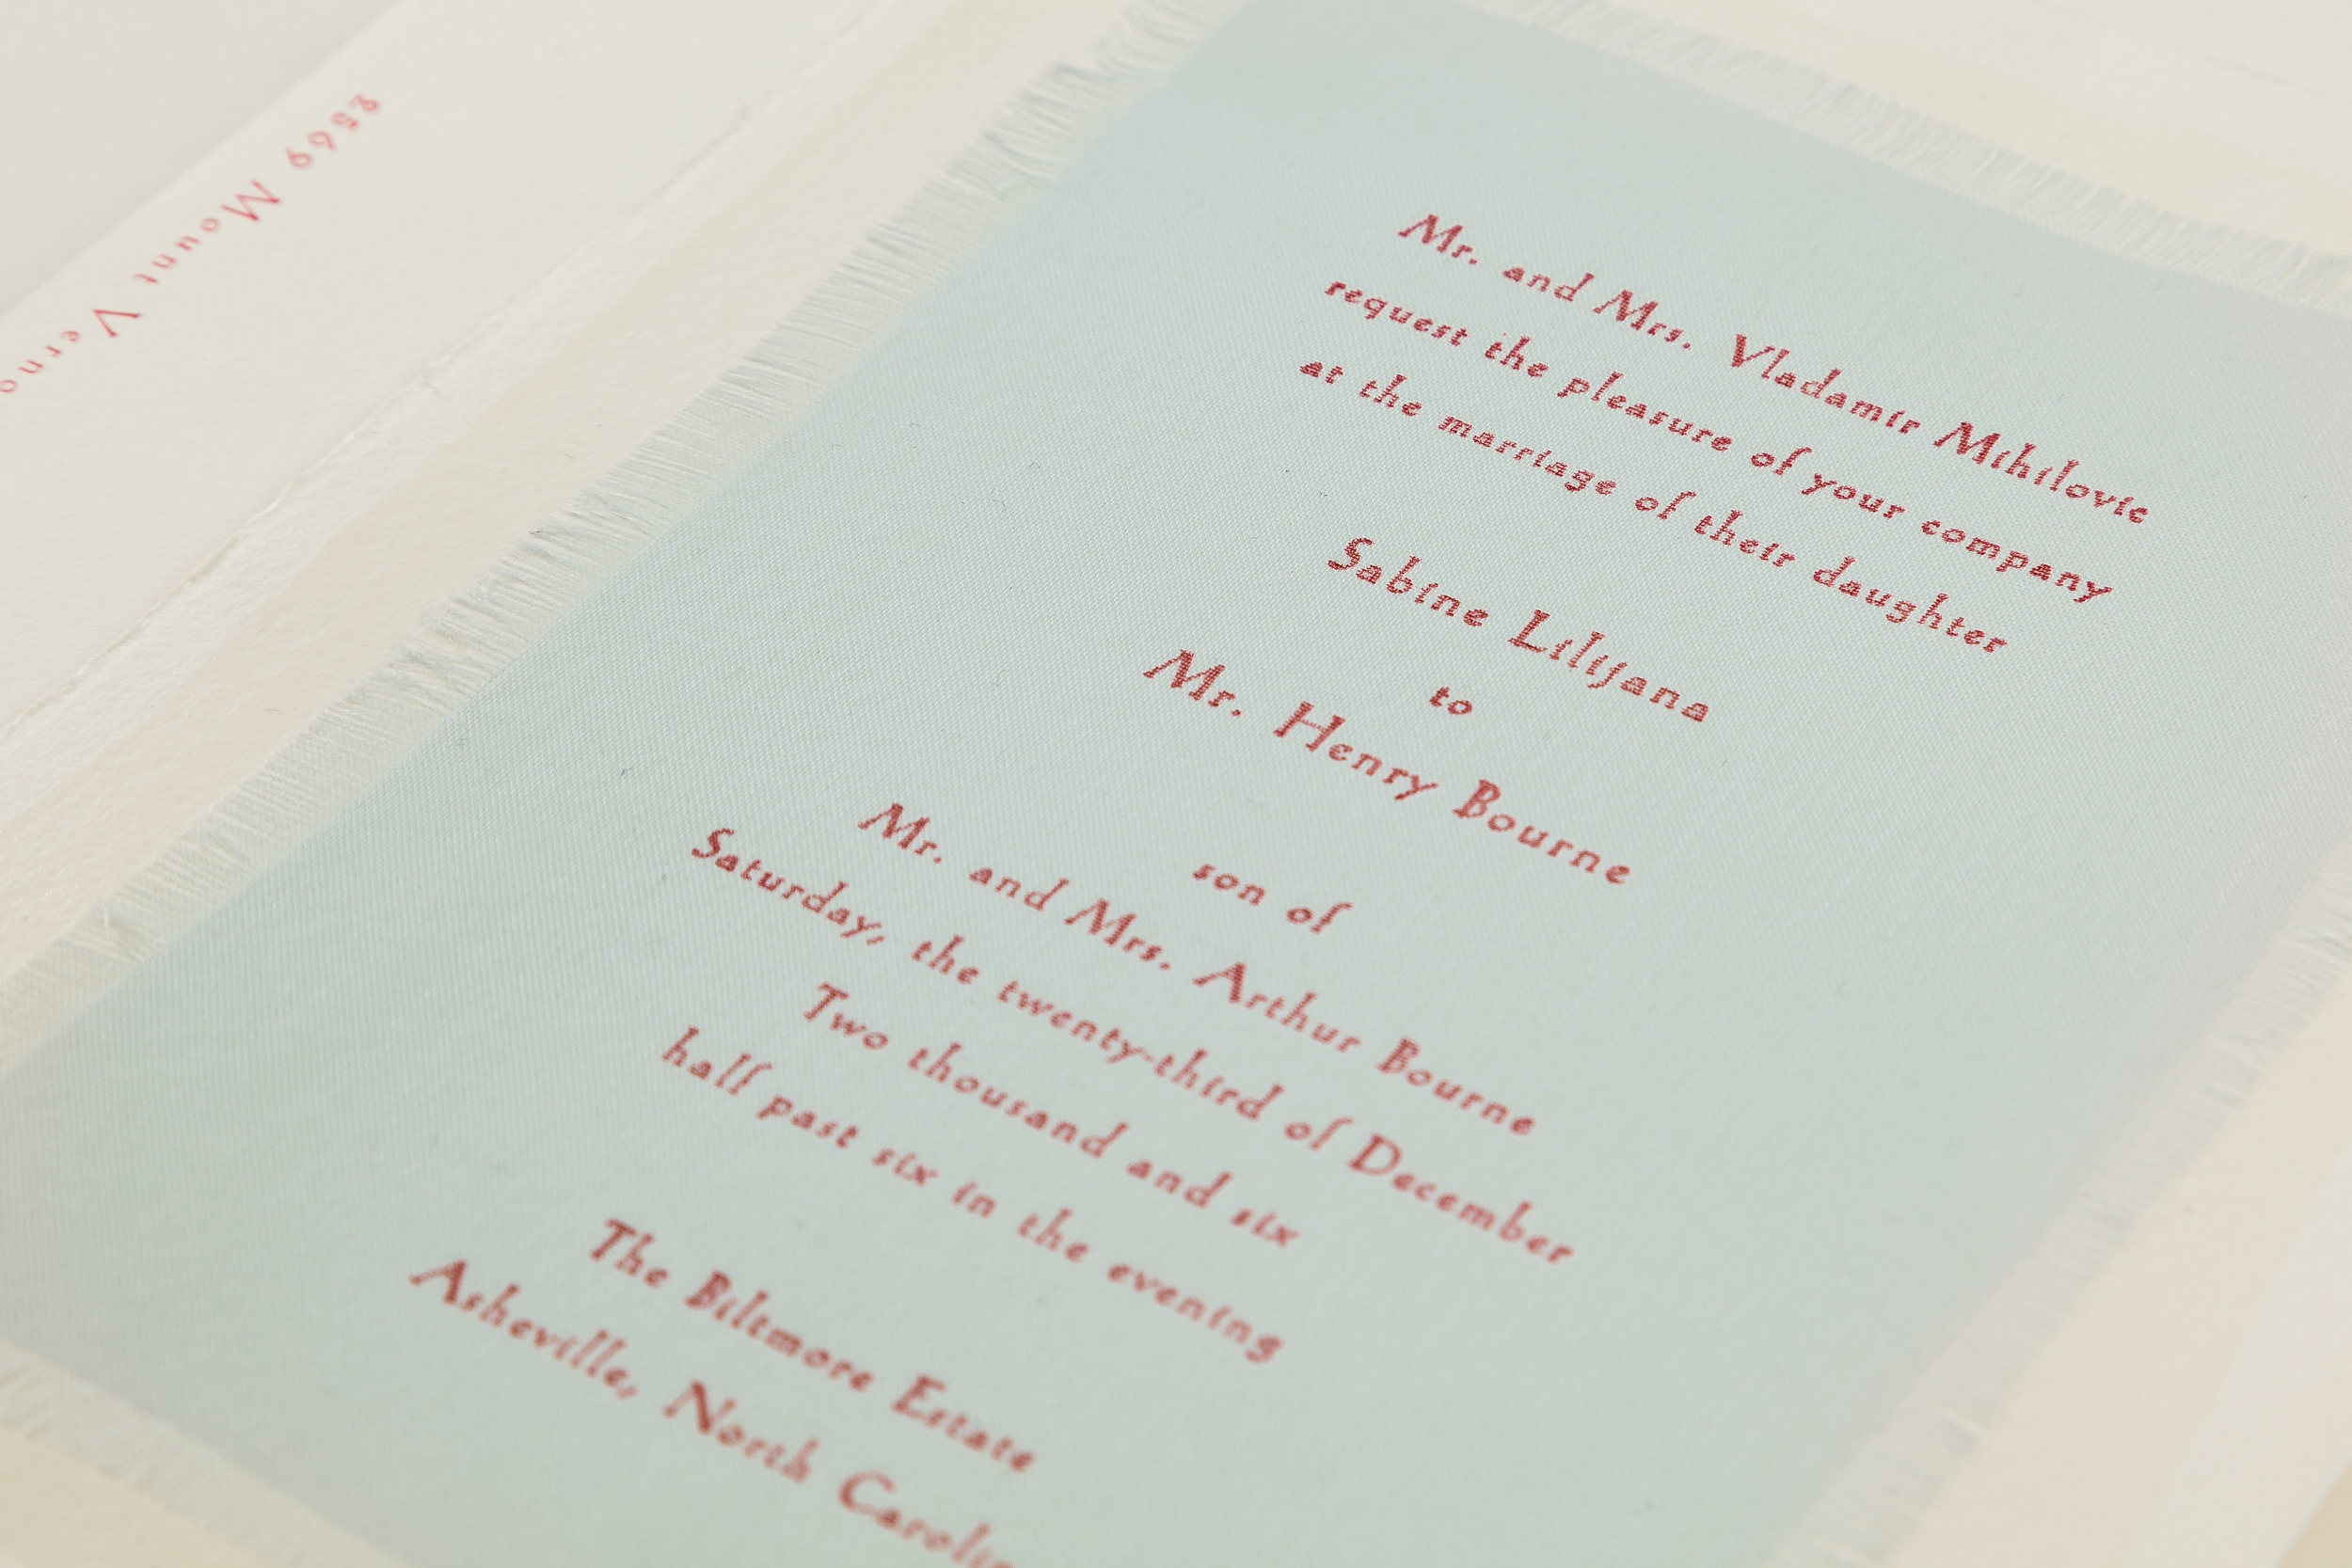 Mr. and Mrs. Vladamir Mihilovic
request the pleasure of your company
at the marriage of their daughter
Sabine Lilijana
to
Mr. Henry Bourne
son of
Mr. and Mrs. Arthur Bourne
Saturday, the twenty-third of December
Two thousand and six
half past six in the evening
The Biltmore Estate
Asheville, North Carolin
2569 Mount Verno